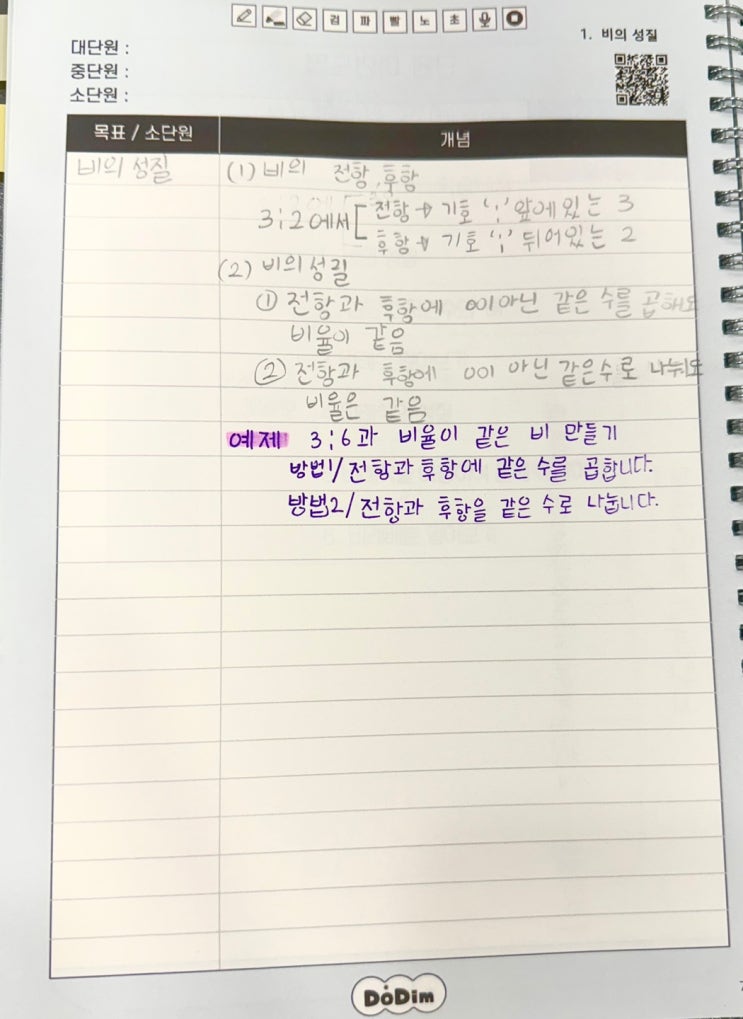 검 파 빨 노 초
1. 비의 성질
대단원 :
중단원 :
소단원 :
목표 / 소단원 개념
비의 성질 (1) 비의 전항, 후항
3:2에서 전항→ 기호 ':' 앞에 있는 3
후항→ 기호 ':' 뒤어있는 2
(2) 비의 성질
① 전항과 후항에 0이 아닌 같은 수를 곱해도
비율이 같음
② 전항과 후항에 0이 아닌 같은 수로 나눠도
비율은 같음
예제 3:6과 비율이 같은 비 만들기
방법1/전항과 후항에 같은 수를 곱합니다.
방법2/전항과 후항을 같은 수로 나눕니다.
DoDim